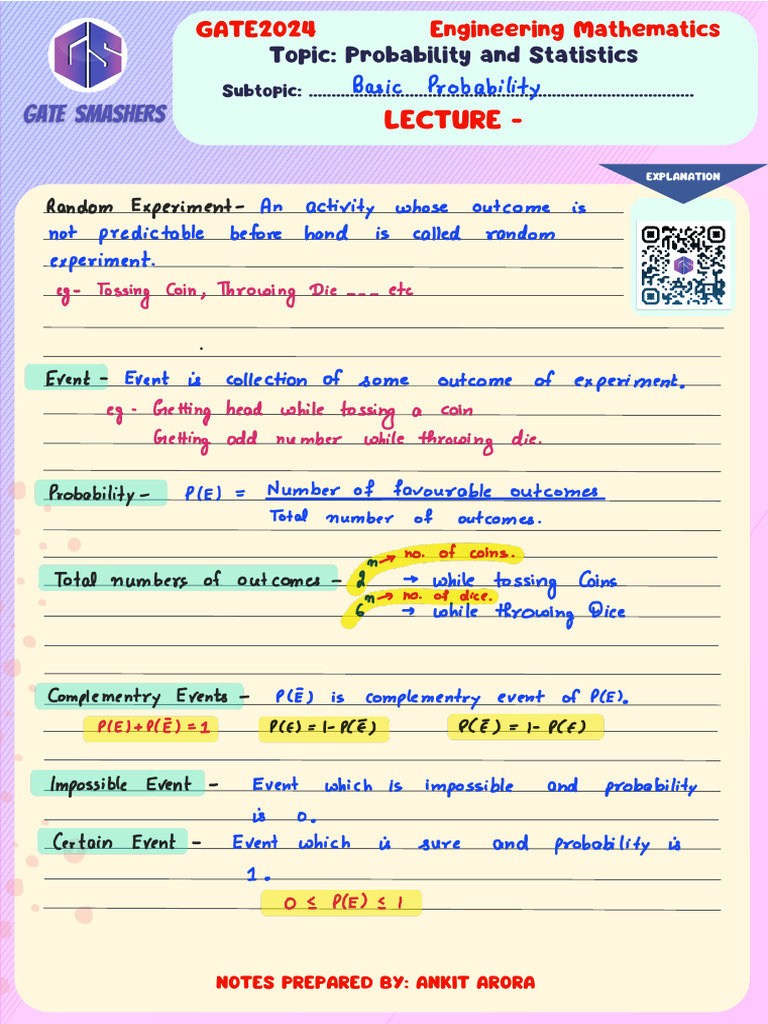 GATE2024 Engineering Mathematics
Topic: Probability and Statistics
Subtopic: ........Basic Probability........
LECTURE -
GATE SMASHERS
EXPLANATION
Random Experiment - An activity whose outcome is
not predictable before hand is called random
experiment.
eg - Tossing Coin, Throwing Die --- etc
Event - Event is collection of some outcome of experiment.
eg - Getting head while tossing a coin
Getting odd number while throwing die.
Probability - P(E) = Number of favourable outcomes
Total number of outcomes.
n → no. of coins.
Total numbers of outcomes - 2 → while tossing Coins
n → no. of dice.
6 → while throwing Dice
Complementry Events - P(Ē) is complementry event of P(E).
P(E)+P(Ē)=1 P(E)=1-P(Ē) P(Ē)=1-P(E)
Impossible Event - Event which is impossible and probability
is 0.
Certain Event - Event which is sure and probability is
1.
0 ≤ P(E) ≤ 1
NOTES PREPARED BY: ANKIT ARORA